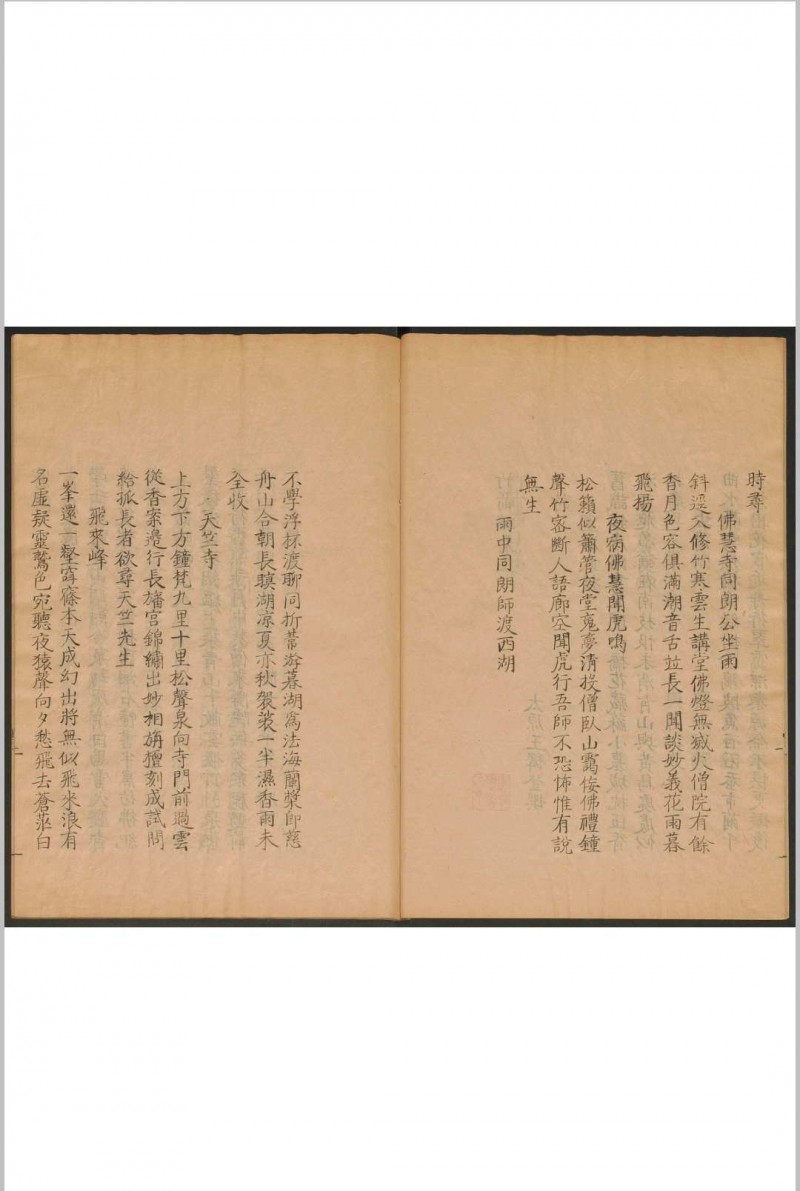 時尋
佛慧寺同朗公坐雨
斜逕入修竹寒雲生講堂佛燈無滅火僧院有餘
香月色容俱滿潮音舌竝長一聞談妙義花雨暮
飛揚
夜病佛慧聞虎鳴
松籟似簫管夜堂䰟夢清投僧臥山靄侫佛禮鐘
聲竹密斷人語廊空聞虎行吾師不恐怖惟有說
無生
雨中同朗師渡西湖
不學浮杯渡聊同折葦游暮湖寫法海蘭槳即慈
舟山合朝長暝湖凉夏亦秋袈裟一半濕香雨未
全收
天竺寺
上方下方鐘梵九里十里松聲泉向寺門前過雲
從香案邊行長旛宮錦繡出妙相旃檀刻成試問
給孤長者欲尋天竺先生
飛來峰
一峯還一壑窅窱本天成幻出將無似飛來浪有
名虛疑靈鷲色宛聽夜猿聲向夕愁飛去蒼茫白